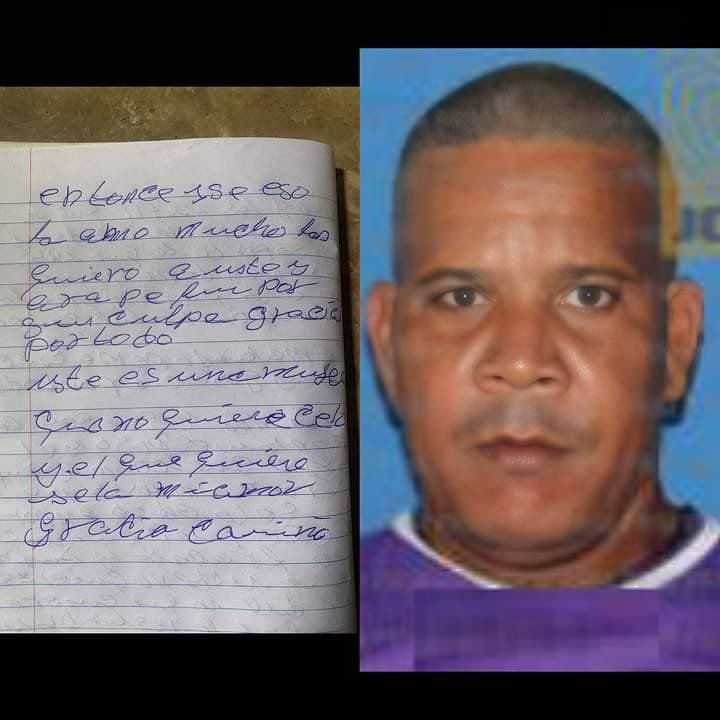 entonce yse eso
la amo mucho las
quiero a uste y
por
culpa gracia
por todo
uste es una muje
que no quiere
y el que quiere
sela mi amor
gracia cariño
JC